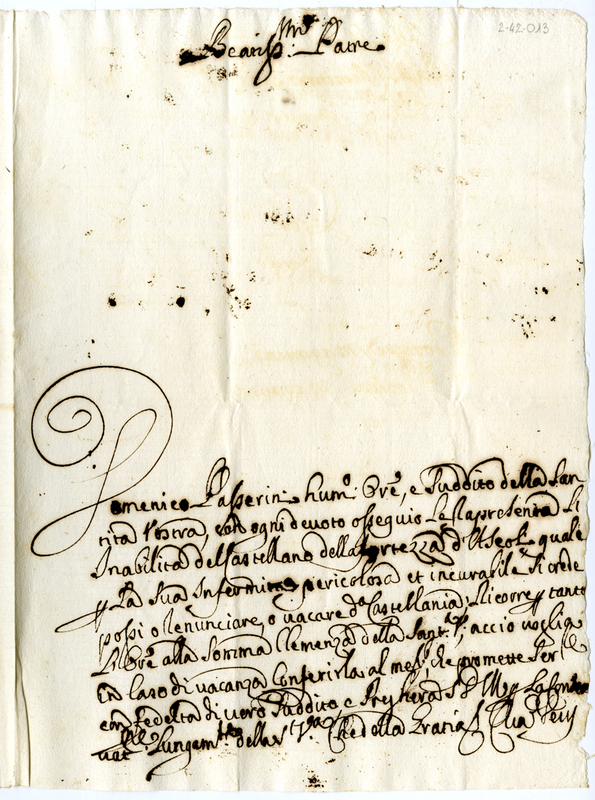 2-42-013
Beatiss.mo Padre
Domenico Passerini hum.o Or.e, e Suddito della San
tità Vostra, con ogni devoto ossequio Le Rapresenta L'
Inabilità del Castellano della fortezza d'Ascoli quale
La Sua Infermità pericolosa et incurabile Si crede
possi o Renunciare, o vacare d.a Castellania; Ricorre tanto
L'Or.e alla Somma Clemenza della Sant.a V., acciò voglia
in Caso di vacanza Conferirla al med.o che promette
con fedeltà di vero Suddito e Pregherà S. D. M.
della Che della Gratia